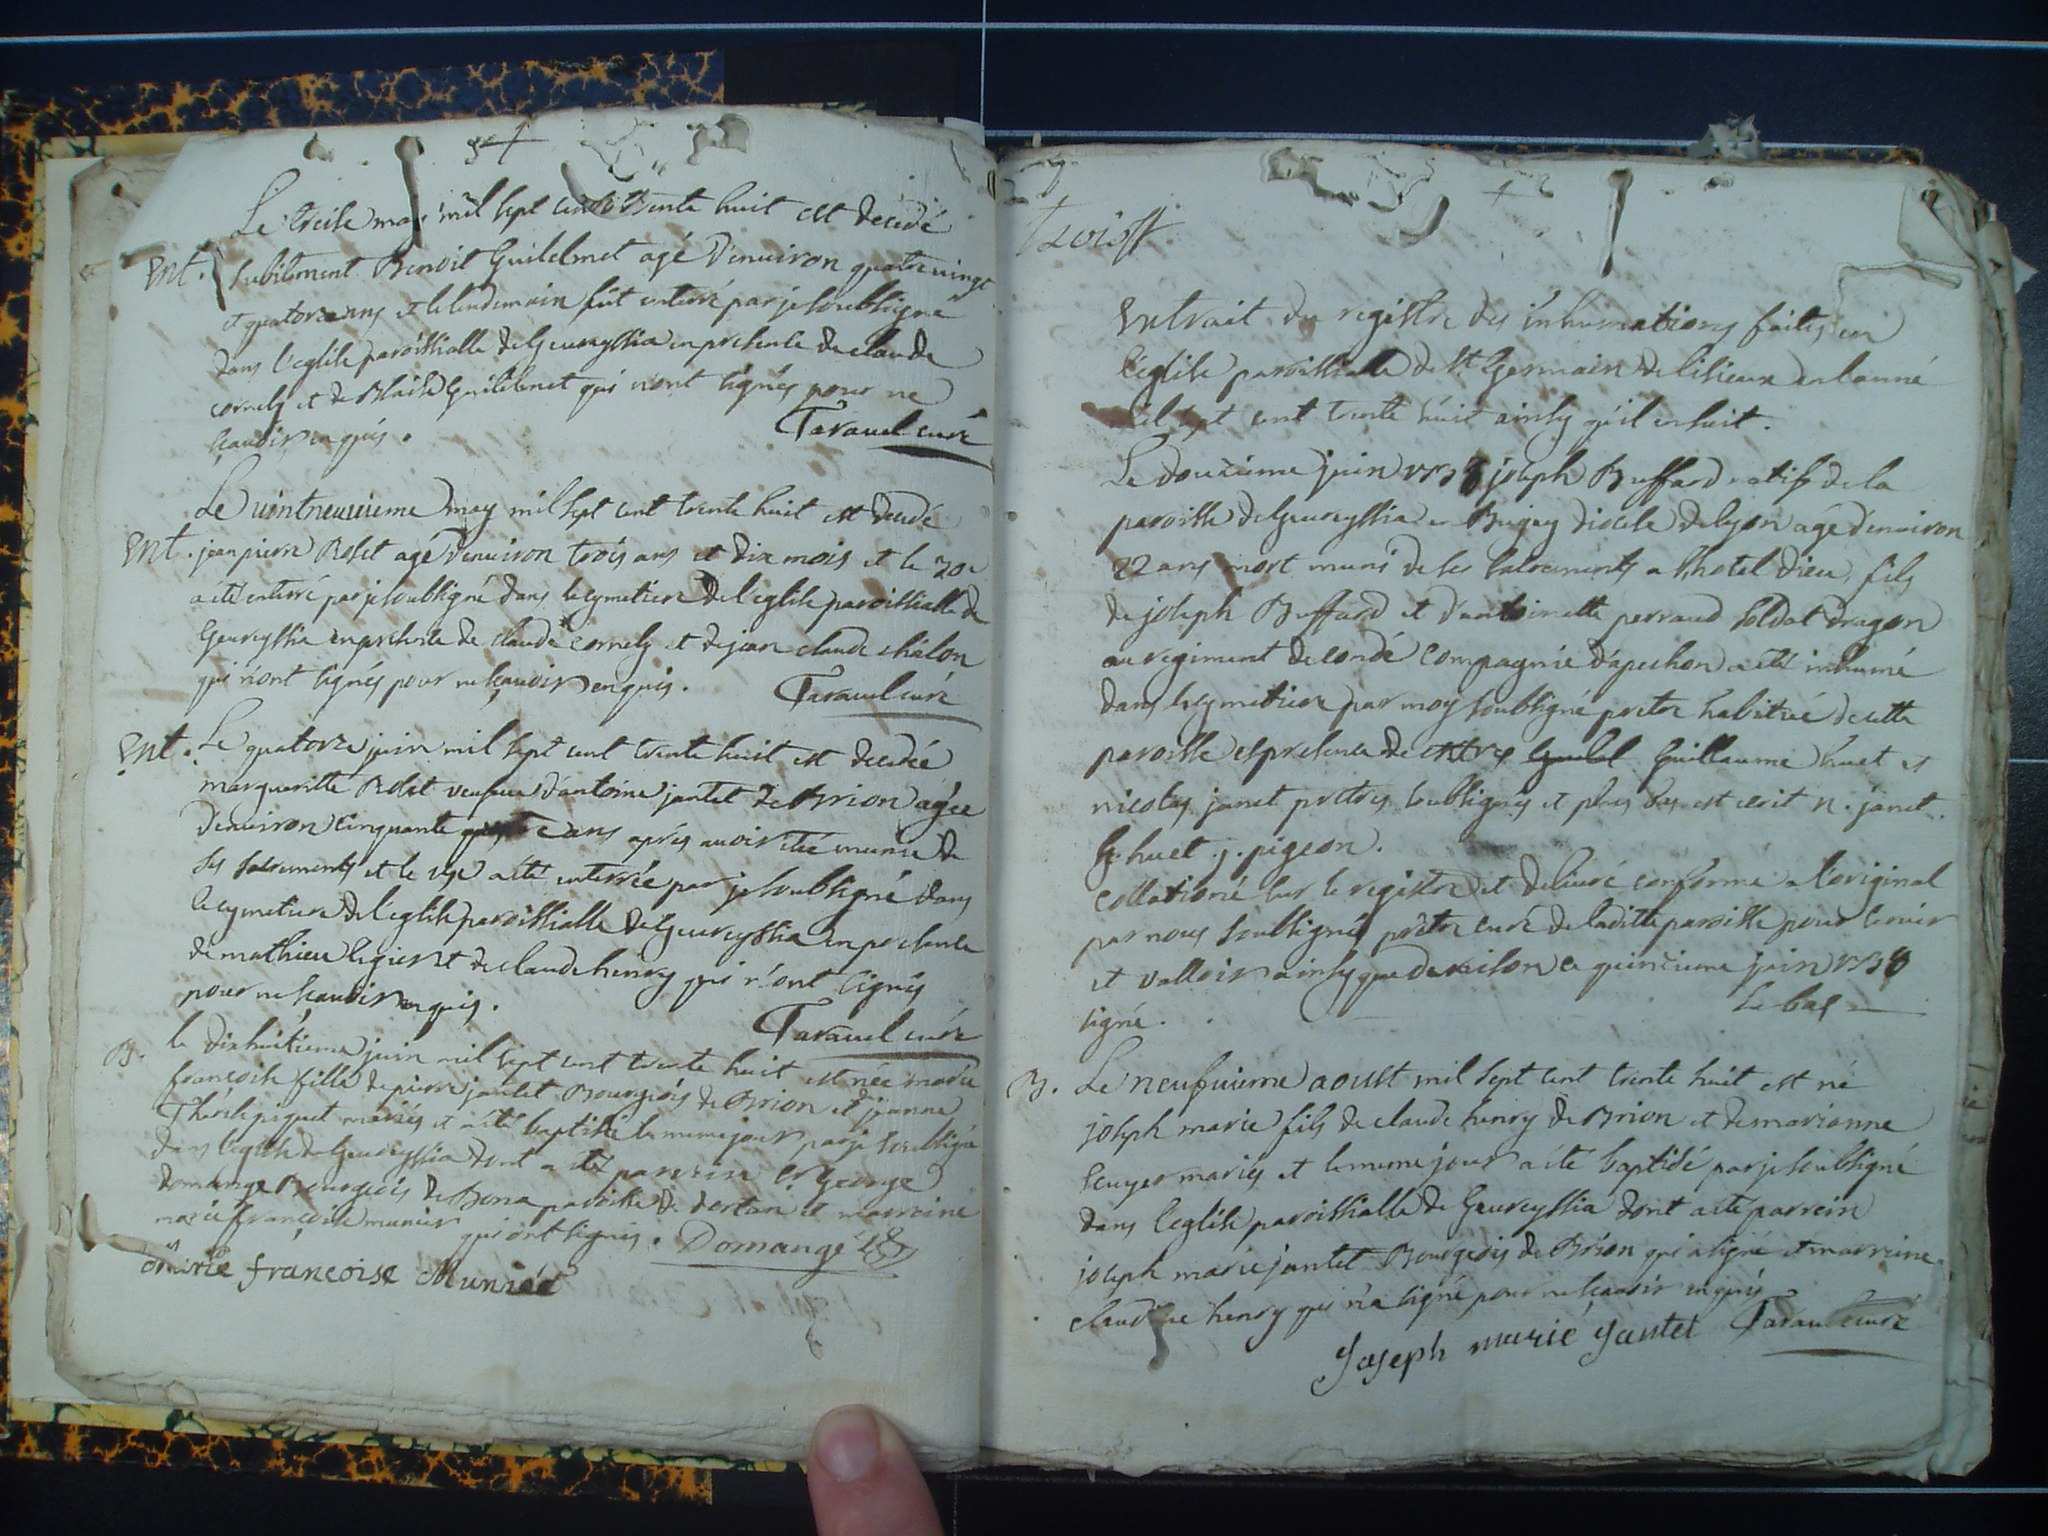 Le treise may mil sept cent trente huit est decedé
Ent. subitement Benoit Guilelmet agé d'environ quatre vingt
et quatorze ans et le lendemain fut enterré par je soubsigné
dans l'eglise paroissialle de Geureyssia en presence de claude
cornely et de Blaise Guilelmet qui n'ont signés pour ne
scauoir enquis. Tarauel curé
Le vintneuuieme may mil sept cent trente huit est decedé
Ent. jean pierre Rolet agé d'enuiron trois ans et dix mois et le 30e
a été enterré par je soubsigné dans le cymetiere de l'eglise paroissialle de
Geureyssia en presence de claude cornely et de jean claude chalon
qui n'ont signés pour ne scauoir enquis. Tarauel curé
Ent. Le quatorze juin mil sept cent trente huit est decedée
margueritte Rolet veufue d'antoine jantet de Brion agée
d'enuiron cinquante ans aprés auoir été munie de
ses sacrements et le 15e a été enterrée par je soubsigné dans
le cymetiere de l'eglise paroissialle de Geureyssia en presence
de mathieu legier et de claude henry qui n'ont signés
pour ne scauoir enquis. Tarauel curé
B. le dixhuitieme juin mil sept cent trente huit est née marie
françoise fille de pierre jantet Bourgeois de Brion et jeanne
Thérèse piquet mariés et a été baptisée le meme jour par je soubsigné
dans l'eglise de Geureyssia dont a été parrein George
domange Bourgeois de Bona paroisse de dortan et marreine
marie françoise munier qui ont signés. Domange
marie françoise Munier
Extrait du registre des inhumations faites en
l'eglise paroissialle de St Germain de lisieux en l'anné
mil sept cent trente huit ainsy qu'il en suit.
Le douzieme juin 1738 joseph Buffard natif de la
paroisse de Geureyssia en Bugey diocese de lyon agé d'enuiron
22 ans mort muni de ses sacrements a l'hotel Dieu, fils
de joseph Buffard et d'antoinette perraud soldat dragon
au regiment de condé compagnie d'apechon a été inhumé
dans le cymetiere par moy soubsigné pretre habitué de cette
paroisse es presence de Guillaume huet et
nicolas janet pretres soubsignés et plus bas est ecrit n. janet.
G. huet. j. pigeon.
collationé sur le registre et deliuré conforme a l'original
par nous soubsigné pretre curé de laditte paroisse pour seruir
et valloir ainsy que de raison ce quinzieme juin 1738
signé. Le bas
B. Le neufuieme aoust mil sept cent trente huit est né
joseph marie fils de claude henry de Brion et de marianne
seuyer mariés et le meme jour a été baptisé par je soubsigné
dans l'eglise paroissialle de Geureyssia dont a été parrein
joseph marie jantet Bourgeois de Brion qui a signé et marreine
claudine henry qui n'a signé pour ne scauoir enquis
Joseph marie Jantet Tarauel curé